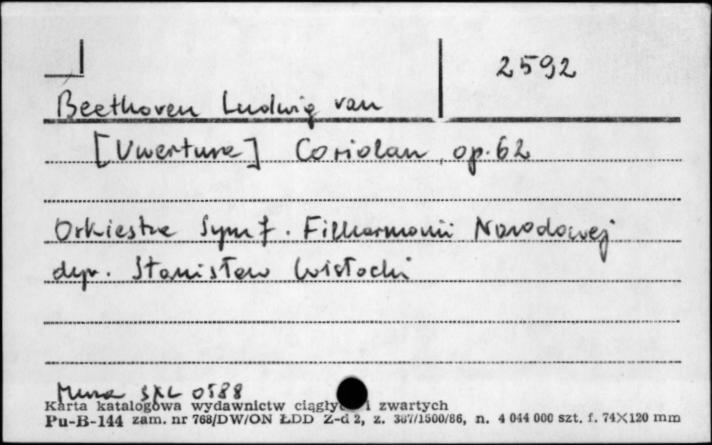 2592
Beethoven Ludwig van
[Uwertura] Coriolan, op. 62
Orkiestra Symf. Filharmonii Narodowej
dyr. Stanisław Wisłocki
Muza SXL 0588
Karta katalogowa wydawnictw ciągłych i zwartych
Pu-B-144 zam. nr 768/DW/ON ŁDD Z-d 2, z. 367/1500/86, n. 4 044 000 szt. f. 74×120 mm